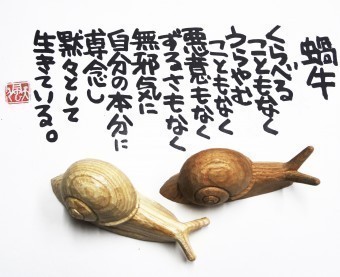 蝸牛
くらべる
こともなく
うらやむ
こともなく
悪意もなく
ずるさもなく
無邪気に
自分の本分に
専念し
黙々として
生きている。